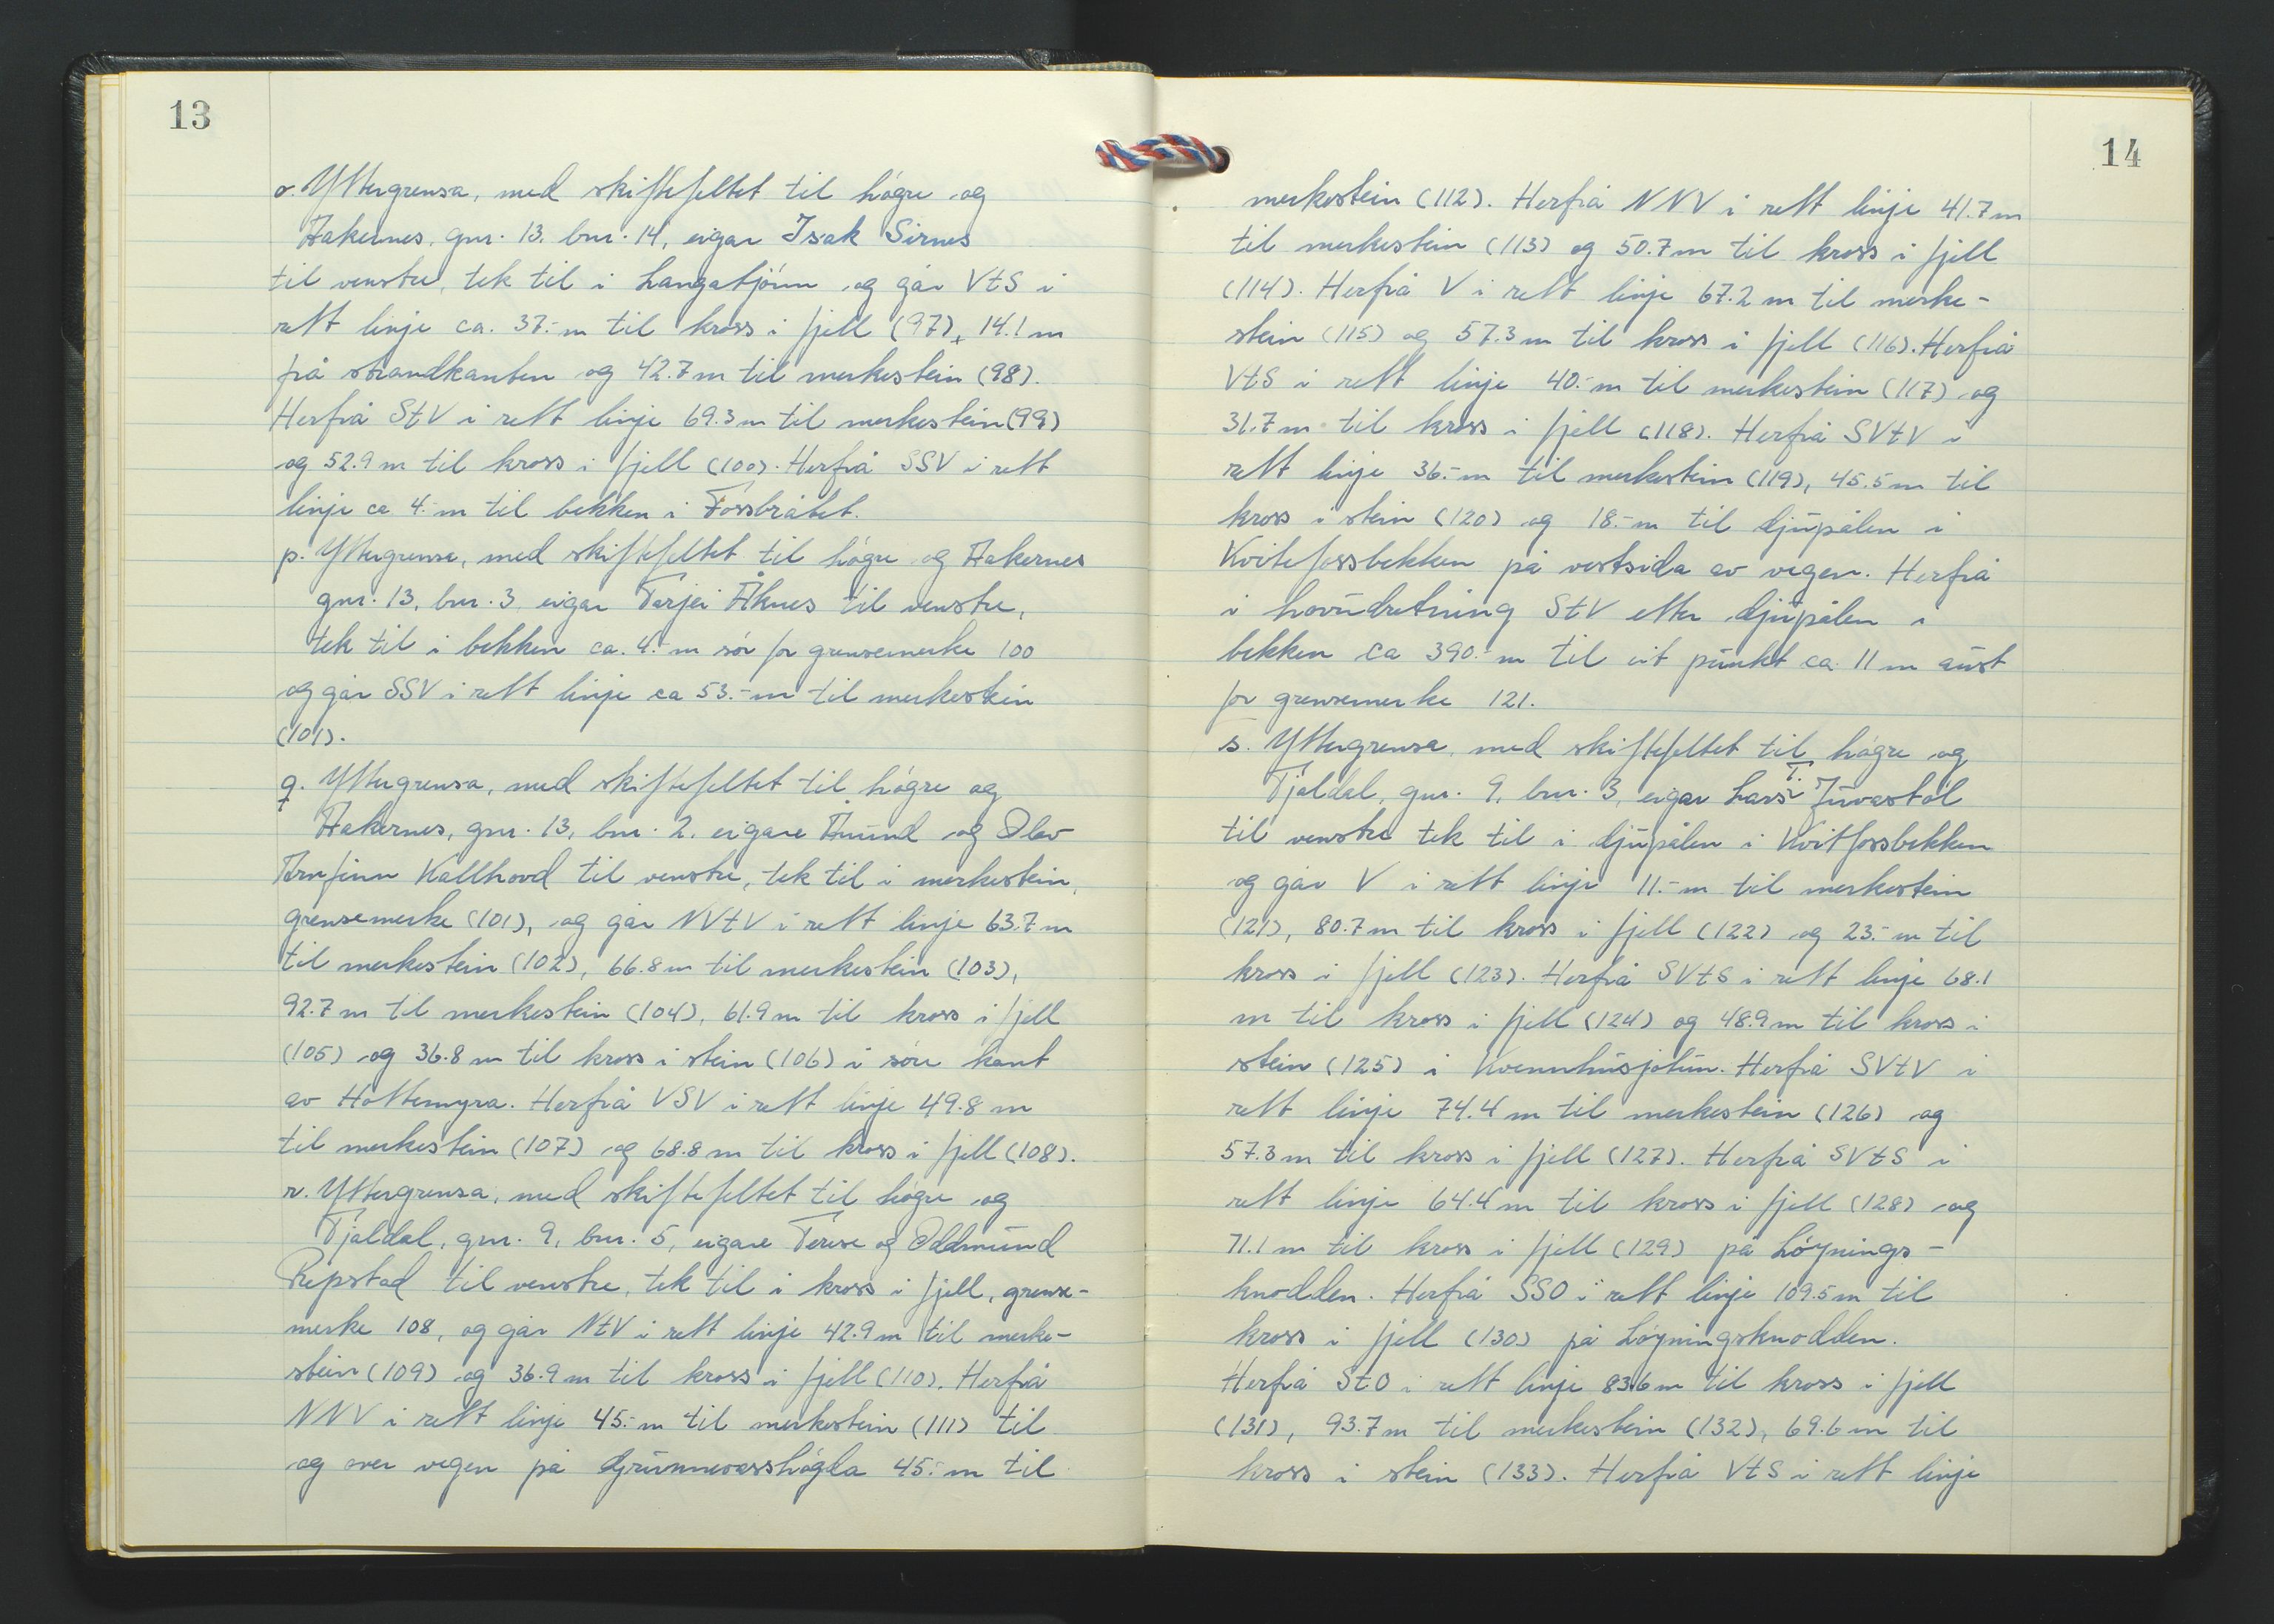 13
o. Yttergrensa, med skiftefeltet til högre og
Hakernes, gnr. 13, bnr. 14, eigar Isak Sirnes
til venstre, tek til i Langatjönn og går VtS i
rett linje ca. 37.- m til kross i fjell (97), 14.1 m
frå strandkanten og 42.7 m til merkestein (98).
Herfrå StV i rett linje 69.3 m til merkestein (99)
og 52.9 m til kross i fjell (100). Herfrå SSV i rett
linje ca 4.- m til bekken i Fossbråtet.
p. Yttergrensa, med skiftefeltet til högre og Hakernes
gnr. 13, bnr. 3 eigar Tarjei Åknes til venstre,
tek til i bekken ca. 4.- m sör for grensemerke 100
og går SSV i rett linje ca 53.- m til merkestein
(101).
q. Yttergrensa, med skiftefeltet til högre og
Hakernes, gnr. 13, bnr. 2. eigare Åmund og Olav
Arnfinn Kallhovd til venstre, tek til i merkestein,
grensemerke (101), og går NVtV i rett linje 63.7 m
til merkestein (102), 66.8 m til merkestein (103),
92.7 m til merkestein (104), 61.9 m til kross i fjell
(105) og 36.8 m til kross i stein (106) i söre kant
av Hottemyra. Herfrå VSV i rett linje 49.8 m
til merkestein (107) og 68.8 m til kross i fjell (108).
r. Yttergrensa, med skiftefeltet til högre og
Tjaldal, gnr. 9, bnr. 5, eigare Terese og Oddmund
Repstad til venstre, tek til i kross i fjell, grense-
merke 108, og går NtV i rett linje 42.9 m til merke-
stein (109) og 36.9 m til kross i fjell (110). Herfrå
NNV i rett linje 45.- m til merkestein (111) til
og over vegen på Grunnevasshögda 45.- m til
14
merkestein (112). Herfrå NNV i rett linje 41.7 m
til merkestein (113) og 50.7 m til kross i fjell
(114). Herfrå V i rett linje 67.2 m til merke-
stein (115) og 57.3 m til kross i fjell (116). Herfrå
VtS i rett linje 40.- m til merkestein (117) og
31.7 m til kross i fjell (118). Herfrå SVtV i
rett linje 36.- m til merkestein (119), 45.5 m til
kross i stein (120) og 18.- m til djupålen i
Kvitefossbekken på vestsida av vegen. Herfrå
i hovudretning StV etter djupålen i
bekken ca 390.- m til eit punkt ca. 11 m aust
for grensemerke 121.
s. Yttergrensa, med skiftefeltet til högre og
Tjaldal, gnr. 9, bnr. 3, eigar Lars T. Juvastøl
til venstre tek til i djupålen i Kvitfossbekken
og går V i rett linje 11.- m til merkestein
(121), 80.7 m til kross i fjell (122) og 23.- m til
kross i fjell (123). Herfrå SVtS i rett linje 68.1
m til kross i fjell (124) og 48.9 m til kross i
stein (125) i Kvennhusjotun. Herfrå SVtV i
rett linje 74.4 m til merkestein (126) og
57.3 m til kross i fjell (127). Herfrå SVtS i
rett linje 64.4 m til kross i fjell (128) og
71.1 m til kross i fjell (129) på Löynings-
knodden. Herfrå SSO i rett linje 109.5 m til
kross i fjell (130) på Löyningsknodden.
Herfrå StO i rett linje 83.6 m til kross i fjell
(131), 93.7 m til merkestein (132), 69.6 m til
kross i stein (133). Herfrå VtS i rett linje